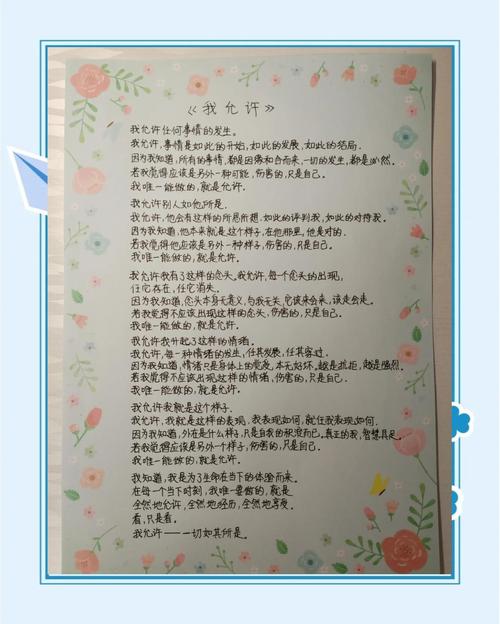 《我允许》
我允许任何事情的发生。
我允许，事情是如此的开始，如此的发展，如此的结局。
因为我知道，所有的事情，都是因缘和合而来，一切的发生，都是必然。
若我觉得应该是另外一种可能，伤害的，只是自己。
我唯一能做的，就是允许。
我允许别人如他所是。
我允许，他会有这样的所思所想，如此的评判我，如此的对待我。
因为我知道，他本来就是这个样子，在他那里，他是对的。
若我觉得他应该是另外一种样子，伤害的，只是自己。
我唯一能做的，就是允许。
我允许我有了这样的念头。我允许，每一个念头的出现，
任它存在，任它消失。
因为我知道，念头本身无意义，与我无关，它该来会来，该走会走。
若我觉得不应该出现这样的念头，伤害的，只是自己。
我唯一能做的，就是允许。
我允许我升起了这样的情绪。
我允许，每一种情绪的发生，任其发展，任其穿过。
因为我知道，情绪只是身体上的觉受，本无好坏。越是抗拒，越是强烈。
若我觉得不应该出现这样的情绪，伤害的，只是自己。
我唯一能做的，就是允许。
我允许我就是这个样子。
我允许，我就是这样的表现，我表现如何，就任我表现如何。
因为我知道，外在是什么样子，只是自我的积淀而已。真正的我，智慧具足。
若我觉得应该是另外一个样子，伤害的，只是自己。
我唯一能做的，就是允许。
我知道，我是为了生命在当下的体验而来。
在每一个当下时刻，我唯一要做的，就是
全然地允许，全然地经历，全然地享受。
看，只是看。
我允许——一切如其所是。